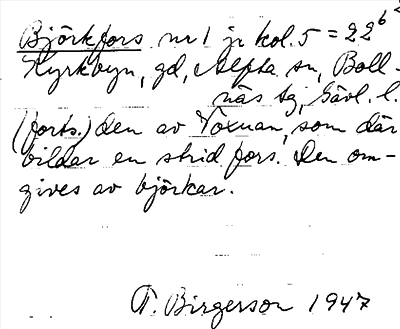 Björkfors nr 1 jr kol. 5 = 22 b 2
Kyrkbyn, gd, Alfta sn, Boll-
näs tg, Gävl. l.
(forts.) den av Voxnan, som där
bildar en strid fors. Den om-
gives av björkar.
T. Birgerson 1947